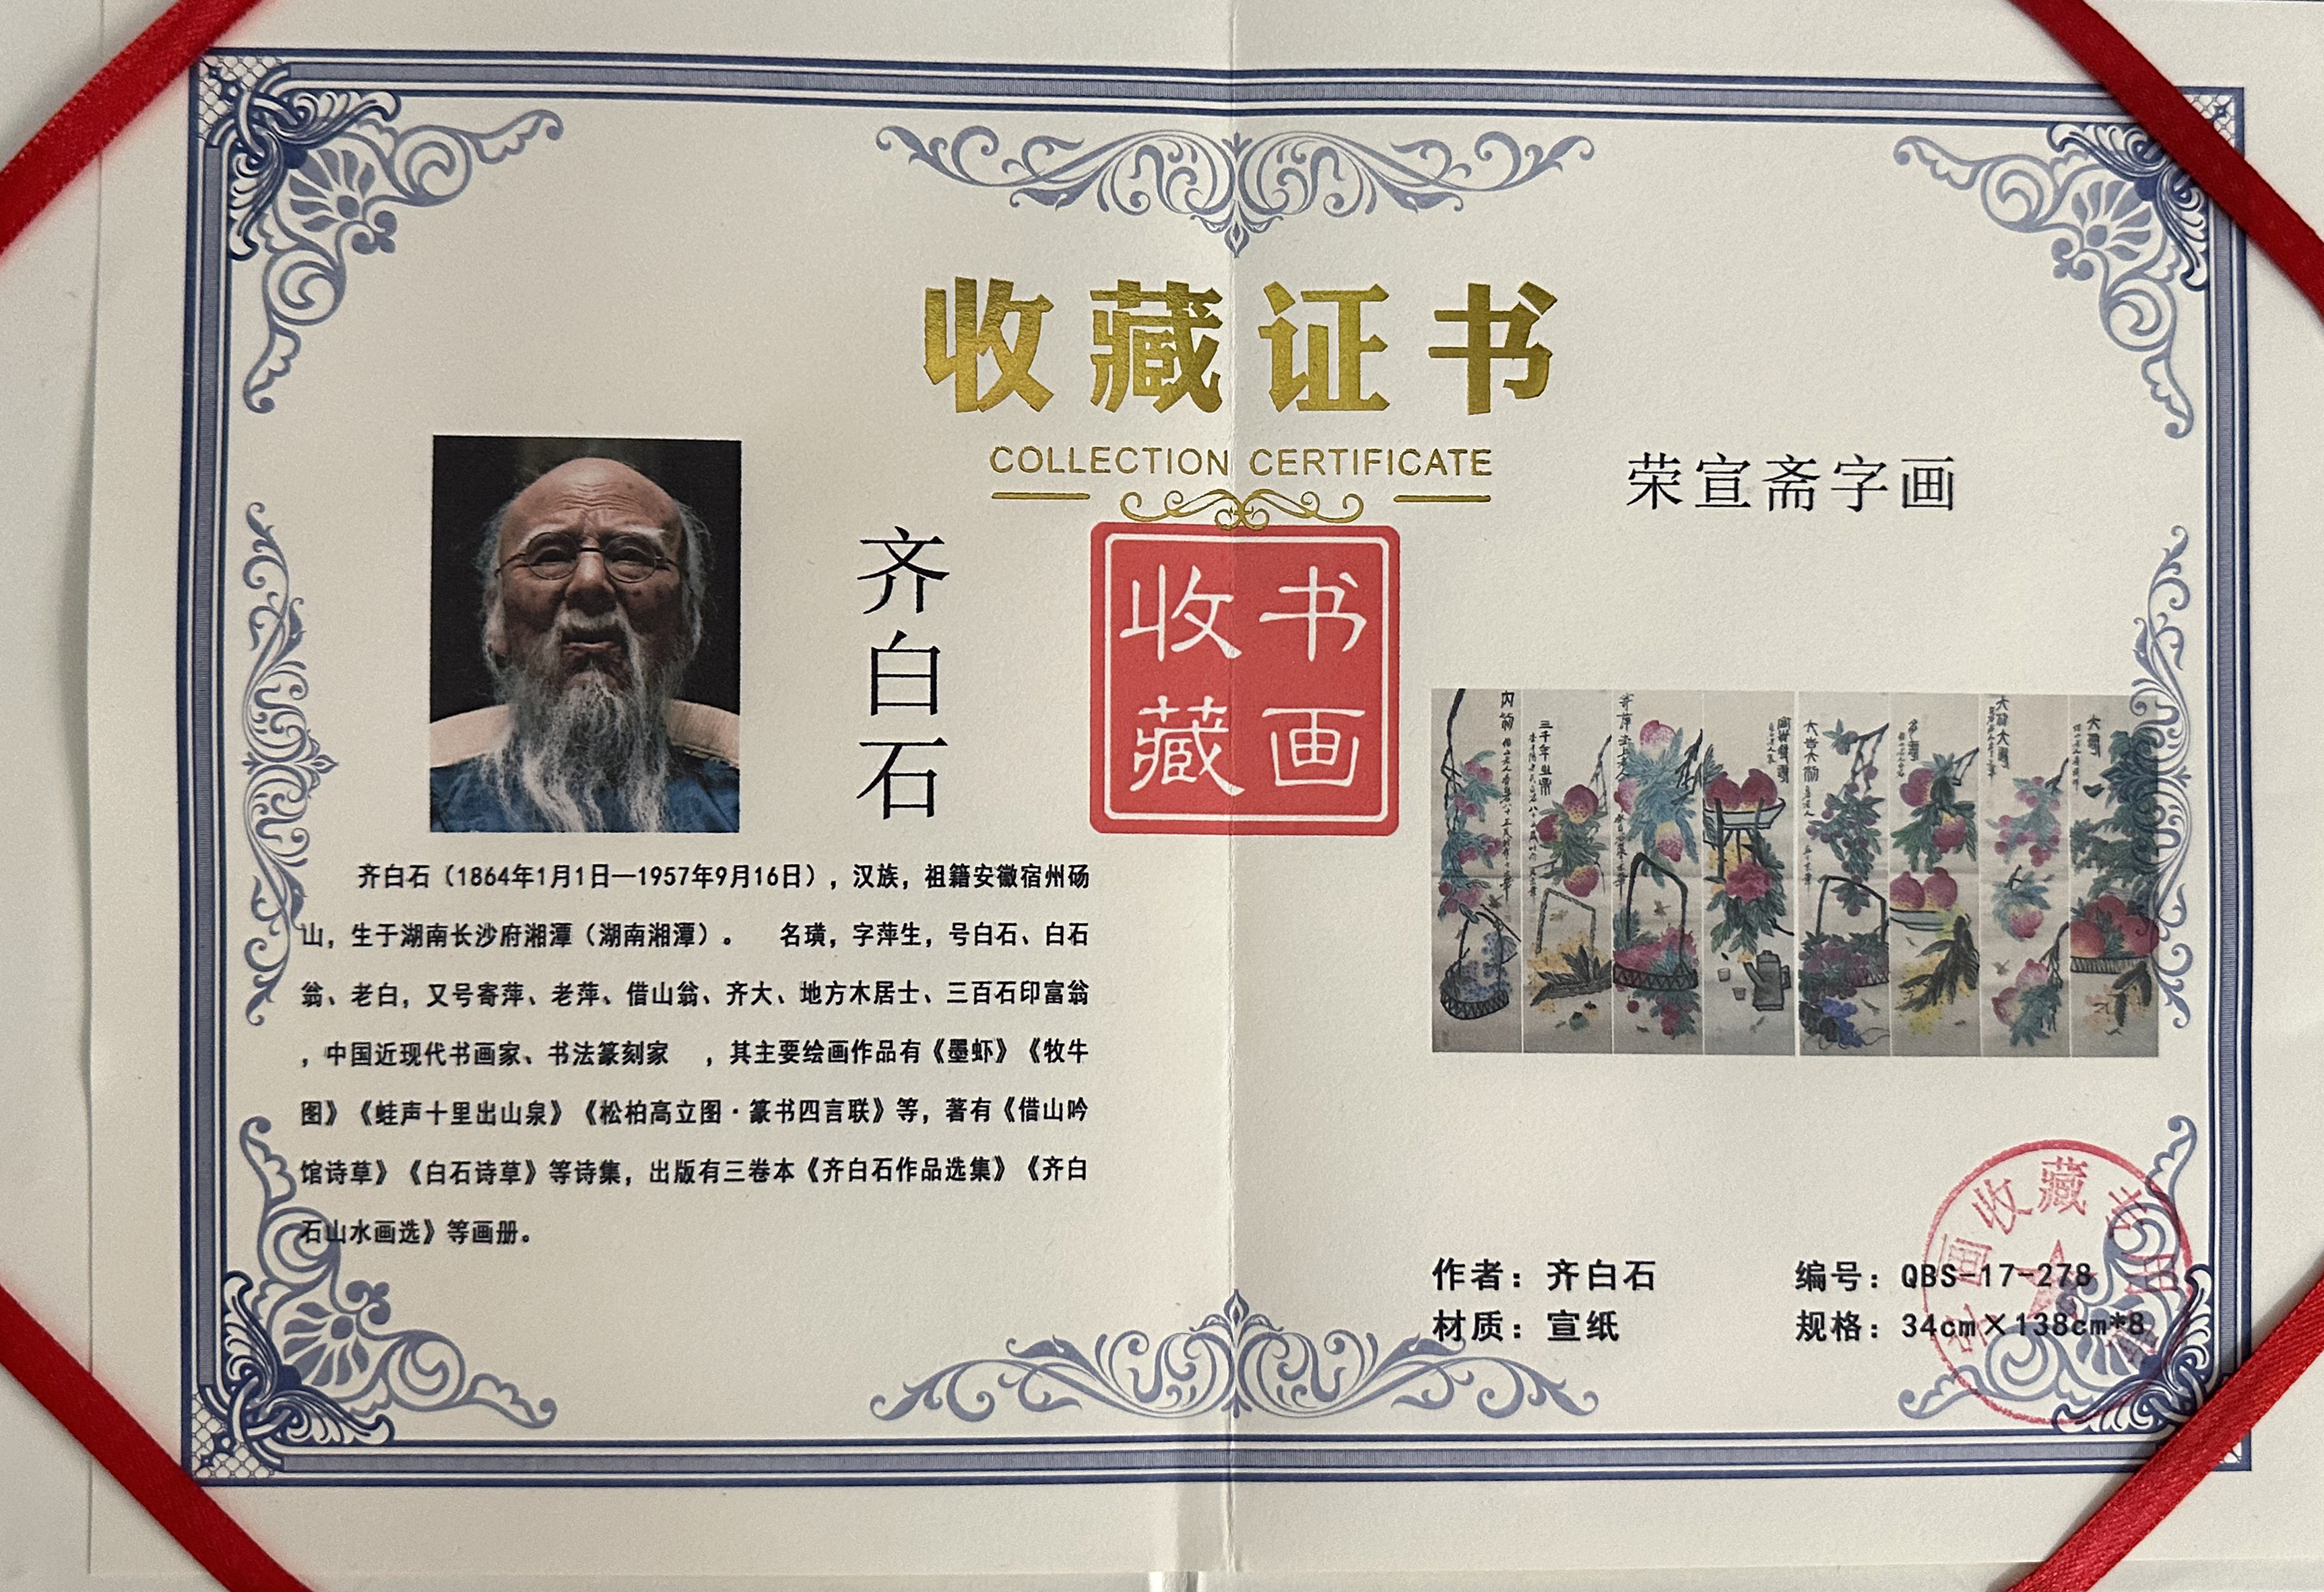 收藏证书
COLLECTION CERTIFICATE
荣宣斋字画
齐白石
收藏
书画
齐白石（1864年1月1日—1957年9月16日），汉族，祖籍安徽宿州砀
山，生于湖南长沙府湘潭（湖南湘潭）。 名璜，字萍生，号白石、白石
翁、老白，又号寄萍、老萍、借山翁、齐大、地方木居士、三百石印富翁
，中国近现代书画家、书法篆刻家 ，其主要绘画作品有《墨虾》《牧牛
图》《蛙声十里出山泉》《松柏高立图·篆书四言联》等，著有《借山吟
馆诗草》《白石诗草》等诗集，出版有三卷本《齐白石作品选集》《齐白
石山水画选》等画册。
三千年
大寿
作者：齐白石
编号：QBS-17-278
材质：宣纸
规格：34cm×138cm*8
画收藏